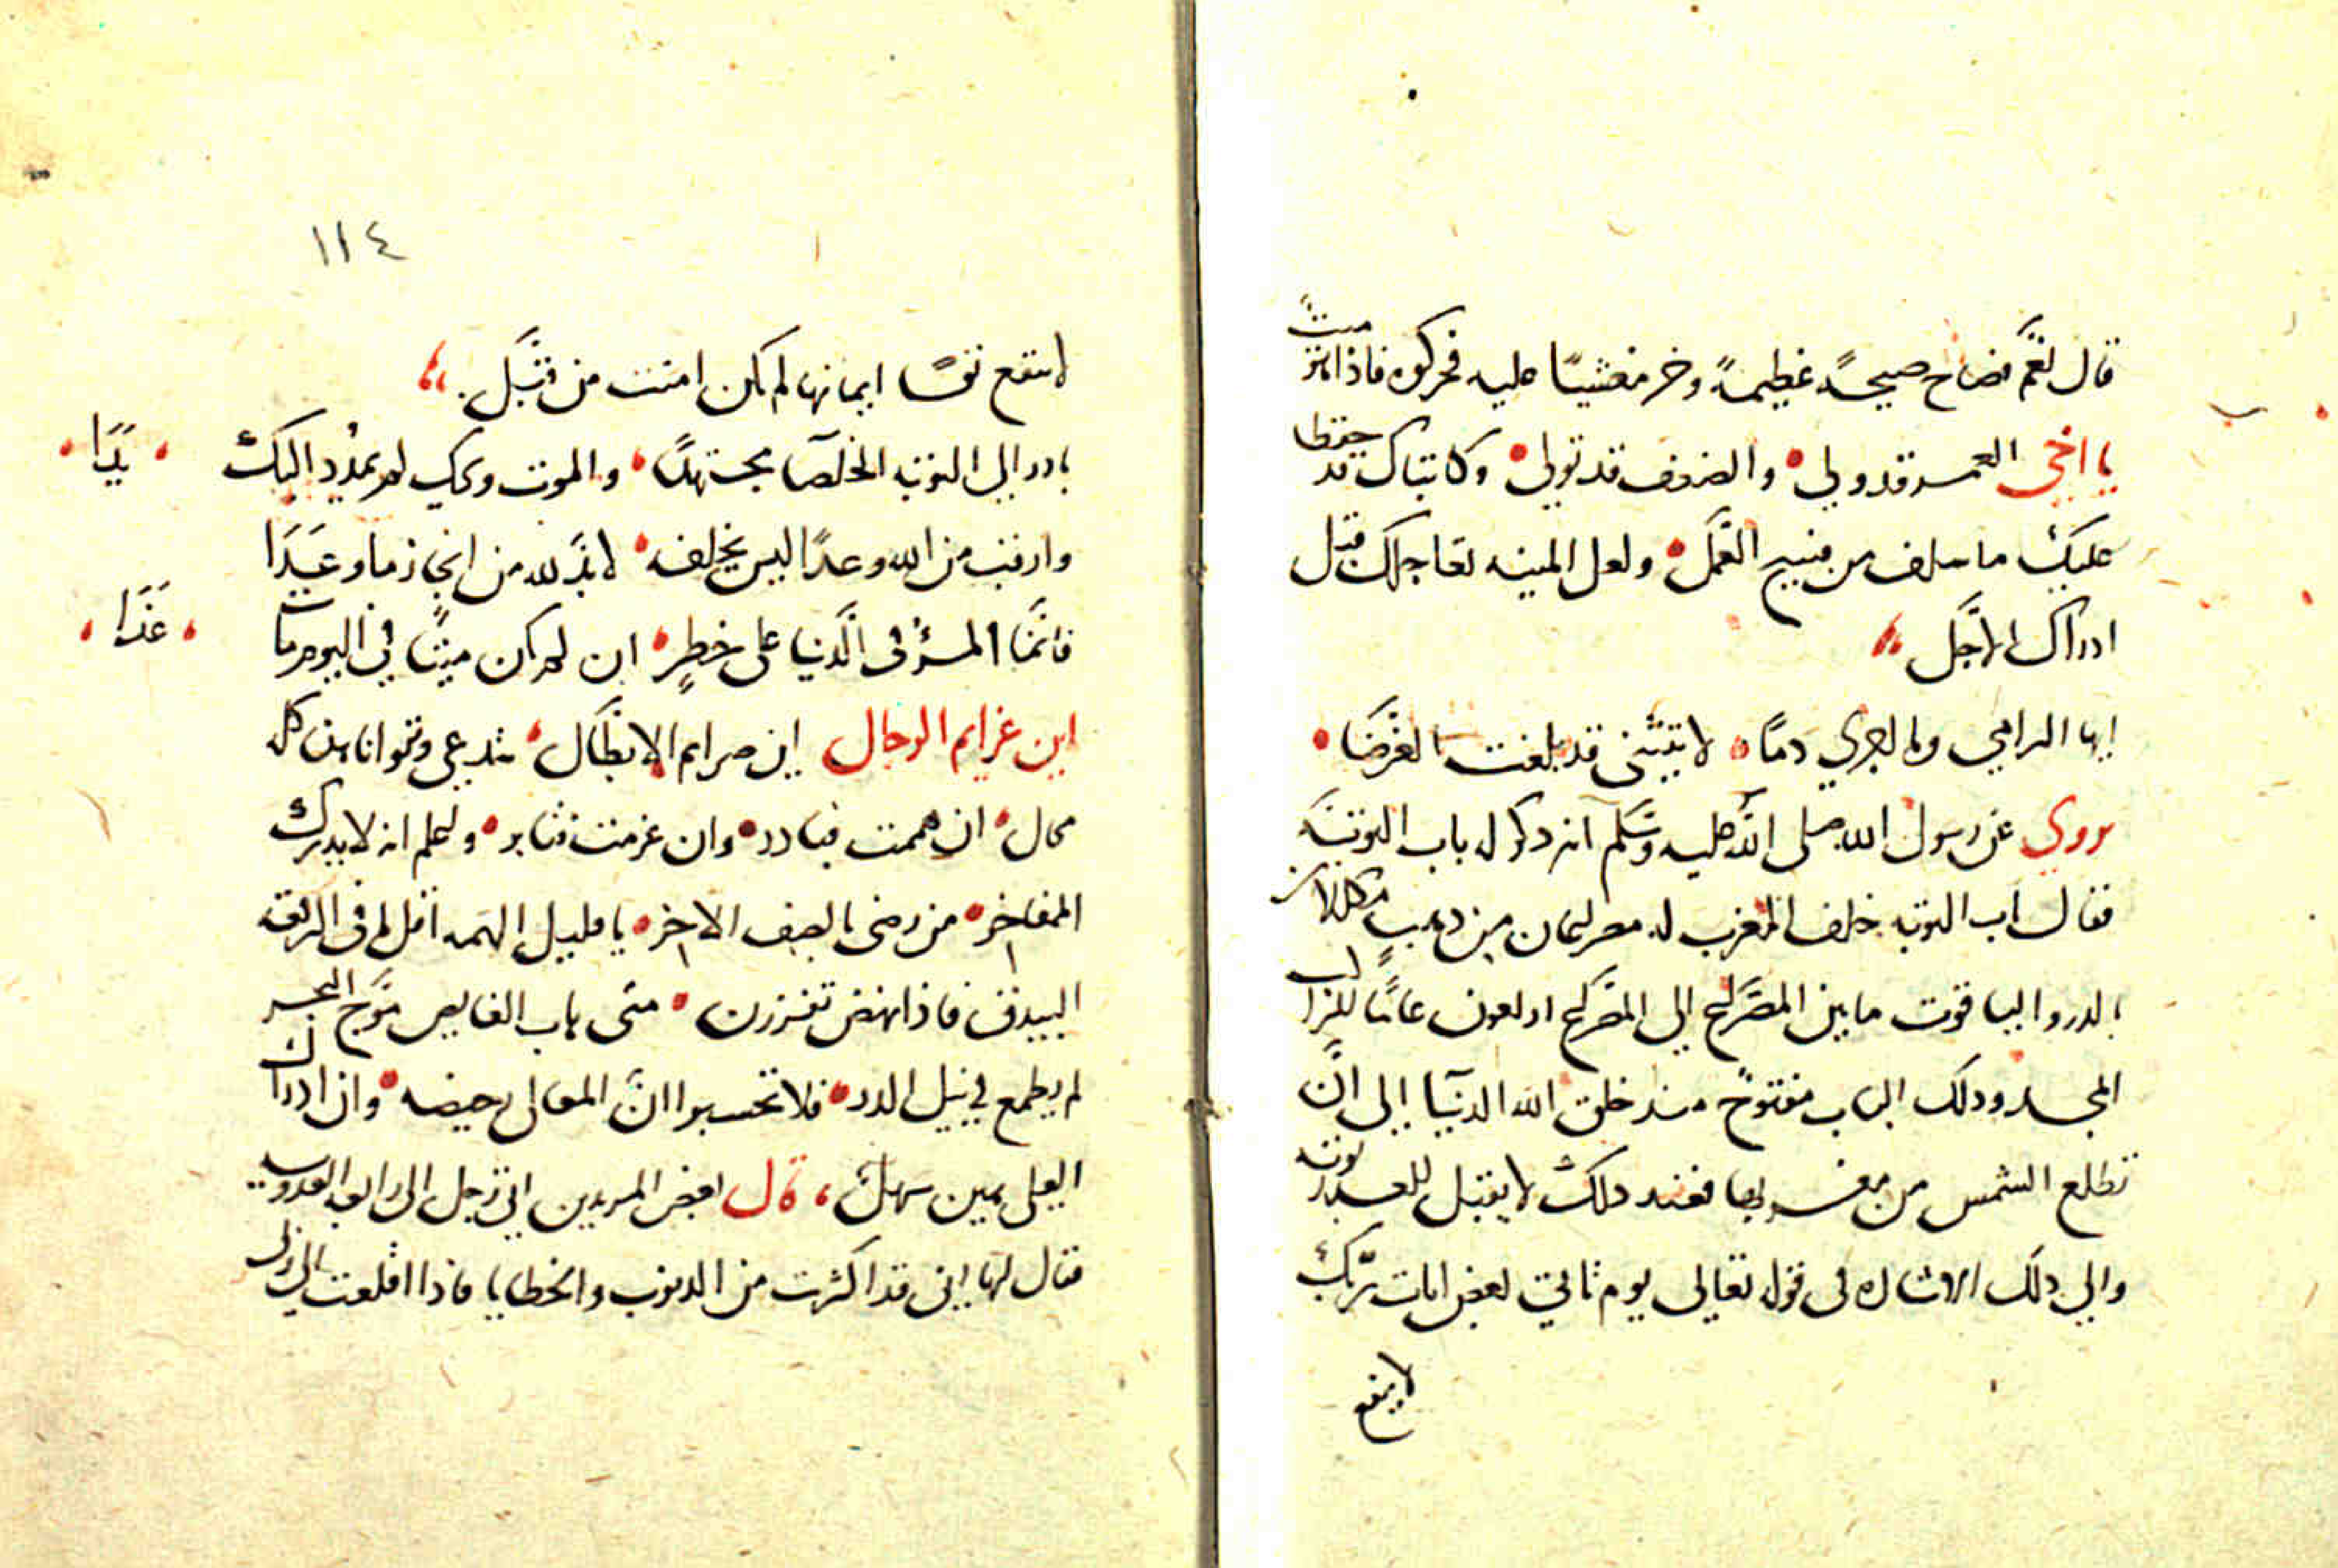 قال نعم فصاح صيحةً عظيمةً وخر مغشيًا عليه فحركوه فاذا هو ميتٌ
يا اخي العمر قد ولي والضعف قد تولي وكاتباك قد حفظا
عليك ما سلف من قبيح العَمَل ولعل المنيه تعاجلك قبل
ادراك الاَجَل
ايها الرامي ولما يجري دمًا لا تبتئنى قد بلغت الغَرَضَا
روي عن رسول الله صلى الله عليه وسَلم انه ذكر له باب التوبَة
فقال باب التوبه خلف المغرب له مصراعان من ذهبٍ مكللان
بالدر والياقوت ما بين المصْرَاع الي المصْرَاع اربعون عامًا للراكب
المجد وذلك الباب مفتوحٌ منذ خلق الله الدنيَا إلى انَّ
تطلع الشمس من مغربها فعند ذلك لا يقبل للعبد توبته
والي ذلك الاشاره في قوله تعالى يوم تاتي بعض ايات ربّك
لا ينفع
١١٤
لا ينفع نفسًا ايمانها لم تكن امنت من قَبَل
بادر الي التوبه الخلصا مجتهدًا والموت ويحك لم يمدُد اليك يَدَا
وارقب من الله وعدًا ليس يخلفه لا بدَّ لله من انجاز ما وعَدَا
فانَّما المرؤ في الدَّنيا على خطرٍ ان لم يكن ميتًا في اليوم مات غَدَا
اين عزايم الرجال اين صرايم الابطَال تدعي وتتوانا هذا كله
محال ان هممت فبادر وان عزمت فثابر واعلم انه لا يدرك
المفاخر من رضى بالصف الاخر يا قليل الهمه اقل ما في الرقعه
البيدق فاذا نهض تفرزن متى هاب الغايص موَج البحر
لم يطمع في نيل الدرر فلا تحسبوا انَّ المعالى رخيصه وان ادراك
العلى هين سهلٌ قال بعض المريدين اتي رجل الى رابعه العدويه
فقال لها اني قد اكثرت من الذنوب والخطايا فاذا اقلعت الي